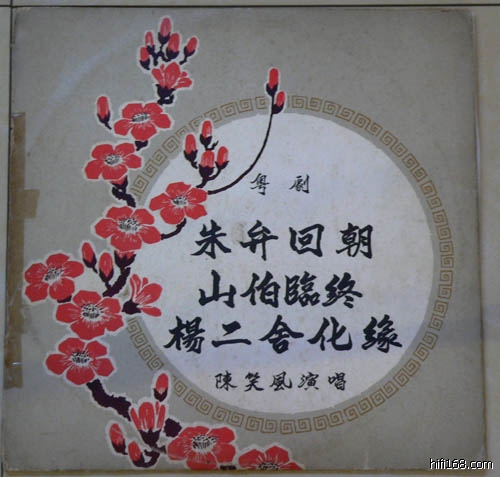 粤剧
朱弁回朝
山伯臨终
楊二舍化缘
陳笑風演唱
hifi168.com